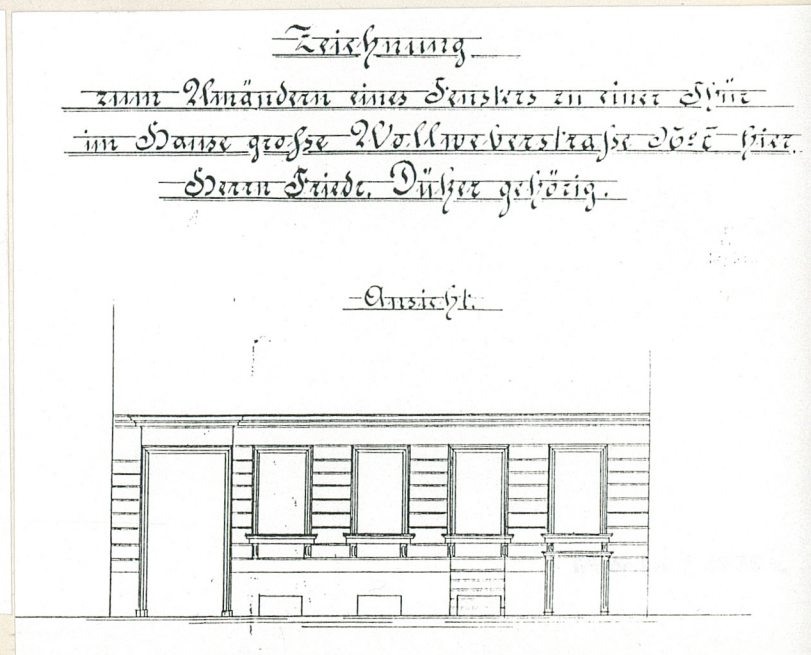 Zeichnung
zum Umändern eines Fensters zu einer Thür
im Hause grosse Wollweberstraße No hier,
Herrn Friedr. gehörig.
Ansicht.